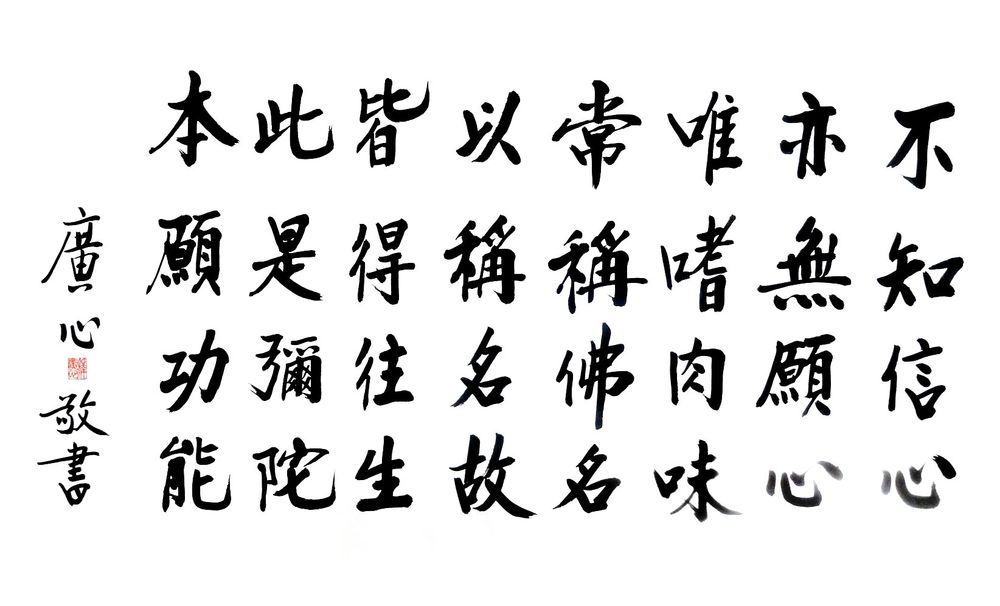 不知信心
亦無願心
唯嗜肉味
常稱佛名
以稱名故
皆得往生
此是彌陀
本願功能
廣心敬書